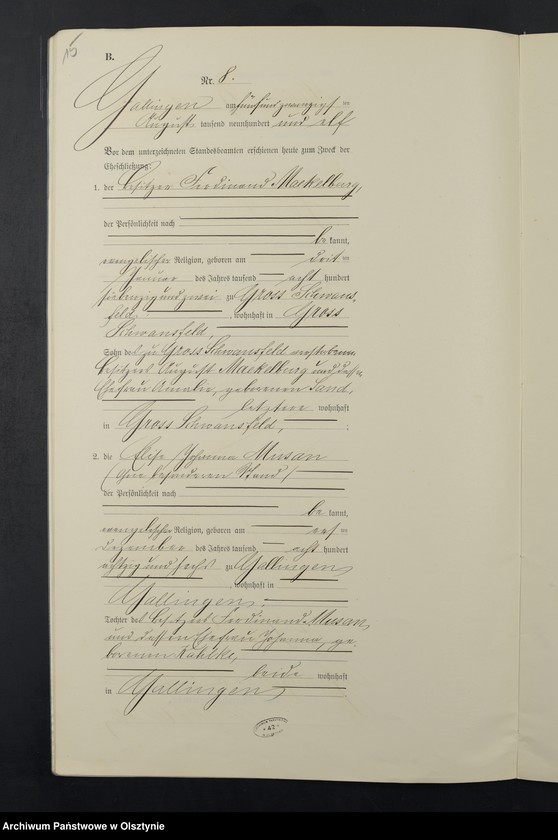 15
B.
Nr. 8.
Gallingen am fünfundzwanzigsten
August tausend neunhundert und elf
Vor dem unterzeichneten Standesbeamten erschienen heute zum Zweck der
Eheschließung:
1. der Besitzer Ferdinand Mackelburg,
der Persönlichkeit nach
be kannt,
evangelischer Religion, geboren am dritten
Januar des Jahres tausend acht hundert
siebenzig und zwei zu Gross Schwans-
feld, wohnhaft in Gross
Schwansfeld,
Sohn des zu Gross Schwansfeld verstorbenen
Besitzers August Mackelburg und dessen
Ehefrau Amalie, geborenen Sand,
letztere wohnhaft
in Gross Schwansfeld,
2. die Elise Johanna Musan
(ohne besonderen Stand)
der Persönlichkeit nach
be kannt,
evangelischer Religion, geboren am
Dezember des Jahres tausend acht hundert
achtzig und sechs zu Gallingen
, wohnhaft in
Gallingen,
Tochter des Besitzers Ferdinand Musan,
und dessen Ehefrau Johanna, ge-
borenen
beide wohnhaft
in Gallingen,
42
Archiwum Państwowe w Olsztynie